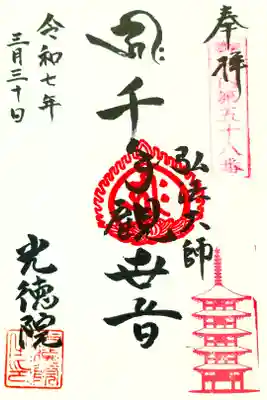 奉拝
五十八番
弘法大師
千手観世音
令和七年
三月三十日
光徳院